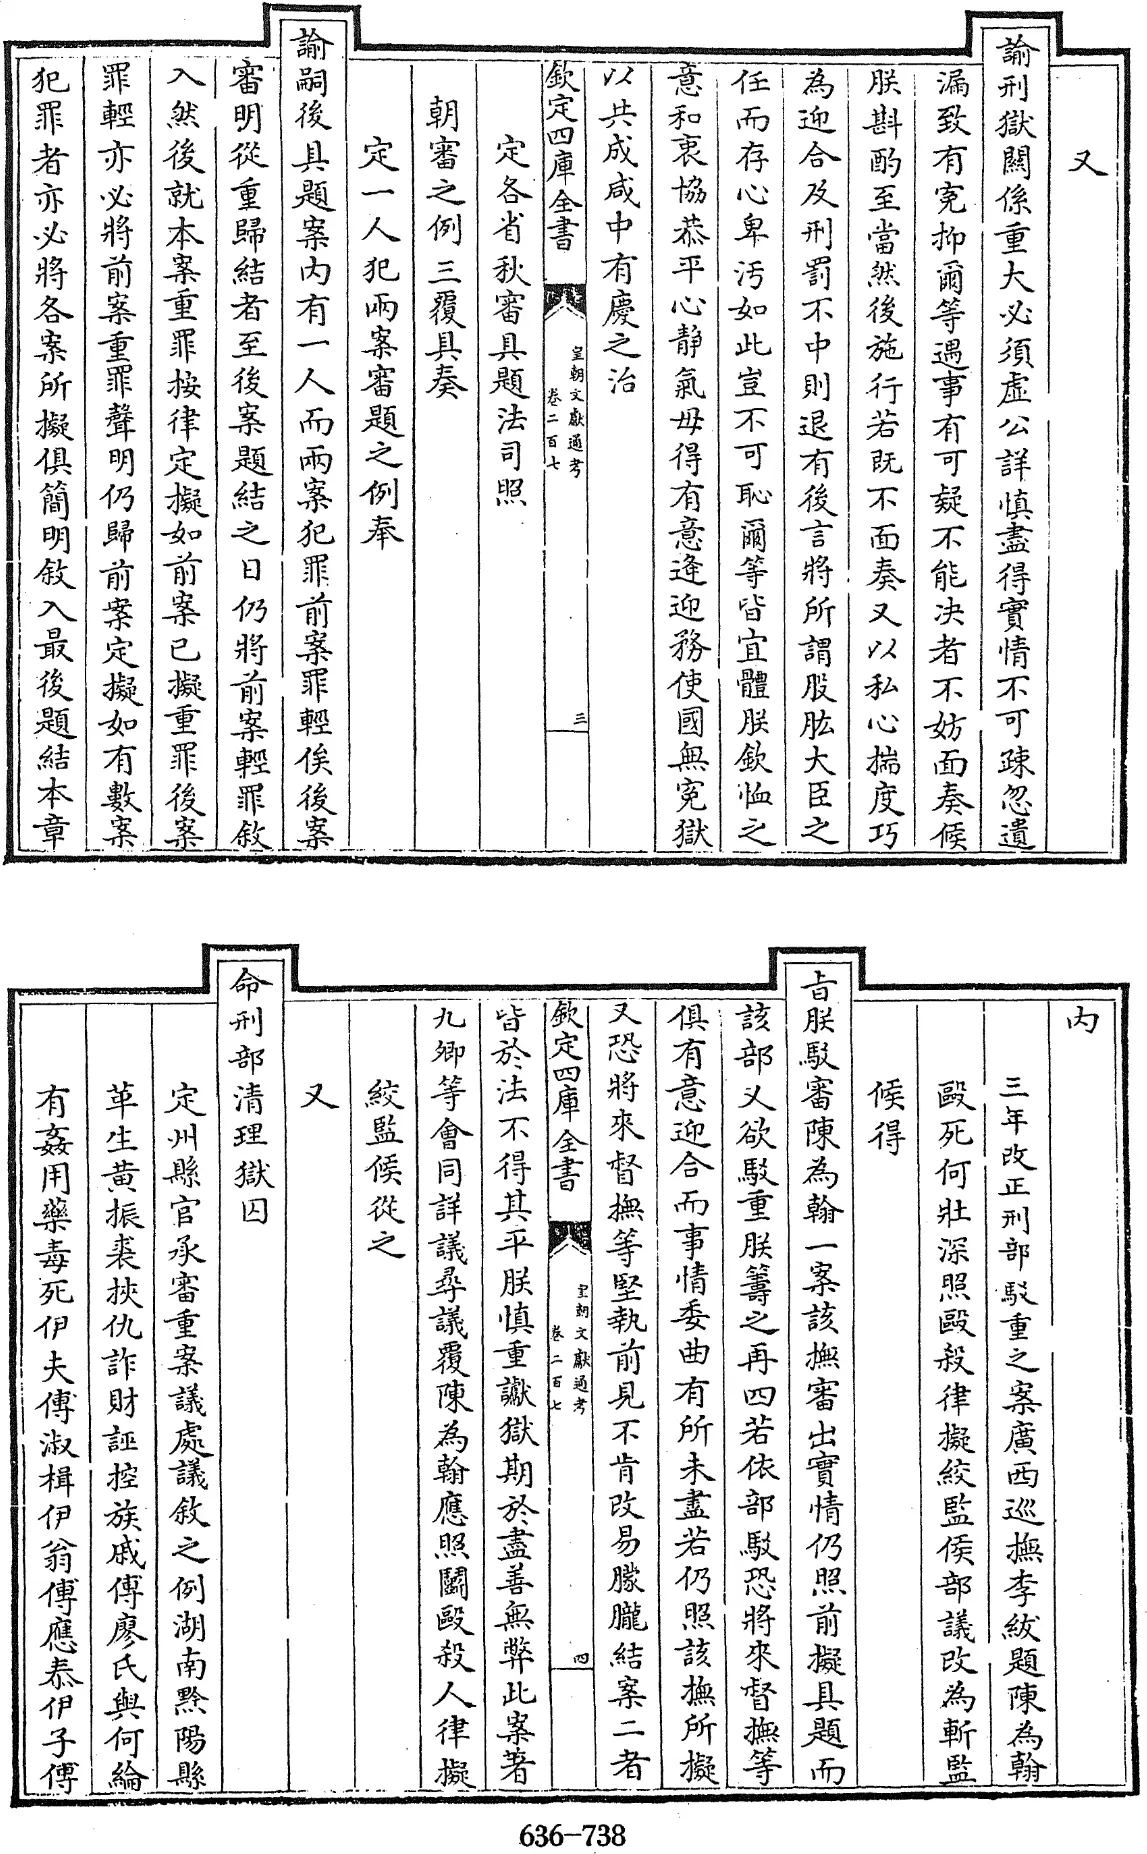 又
諭刑獄關係重大必須虛公詳慎盡得實情不可疎忽遺
漏致有寃抑爾等遇事有可疑不能决者不妨面奏候
朕斟酌至當然後施行若既不面奏又以私心揣度巧
為迎合及刑罰不中則退有後言將所謂股肱大臣之
任而存心卑汚如此豈不可恥爾等皆宜體朕欽恤之
意和衷協恭平心静氣毋得有意逢迎務使國無寃獄
以共成咸中有慶之治
欽定四庫全書
皇朝文獻通考
卷二百七
三
定各省秋審具題法司照
朝審之例三覆具奏
定一人犯兩案審題之例奉
諭嗣後具題案内有一人而兩案犯罪前案罪輕俟後案
審明從重歸結者至後案題結之日仍將前案輕罪敘
入然後就本案重罪按律定擬如前案已擬重罪後案
罪輕亦必將前案重罪聲明仍歸前案定擬如有數案
犯罪者亦必將各案所擬俱簡明敘入最後題結本章
内
三年改正刑部駁重之案廣西巡撫李紱題陳為翰
毆死何壯深照毆殺律擬絞監候部議改為斬監
候得
旨朕駁審陳為翰一案該撫審出實情仍照前擬具題而
該部又欲駁重朕籌之再四若依部駁恐將來督撫等
俱有意迎合而事情委曲有所未盡若仍照該撫所擬
又恐將來督撫等堅執前見不肯改易朦朧結案二者
欽定四庫全書
皇朝文獻通考
卷二百七
四
皆於法不得其平朕慎重讞獄期於盡善無弊此案著
九卿等會同詳議尋議覆陳為翰應照鬬毆殺人律擬
絞監候從之
又
命刑部清理獄囚
定州縣官承審重案議處議敘之例湖南黔陽縣
革生黄振裘挾仇詐財誣控族戚傅廖氏與何綸
有姦用藥毒死伊夫傅淑楫伊翁傅應泰伊子傅
636-738